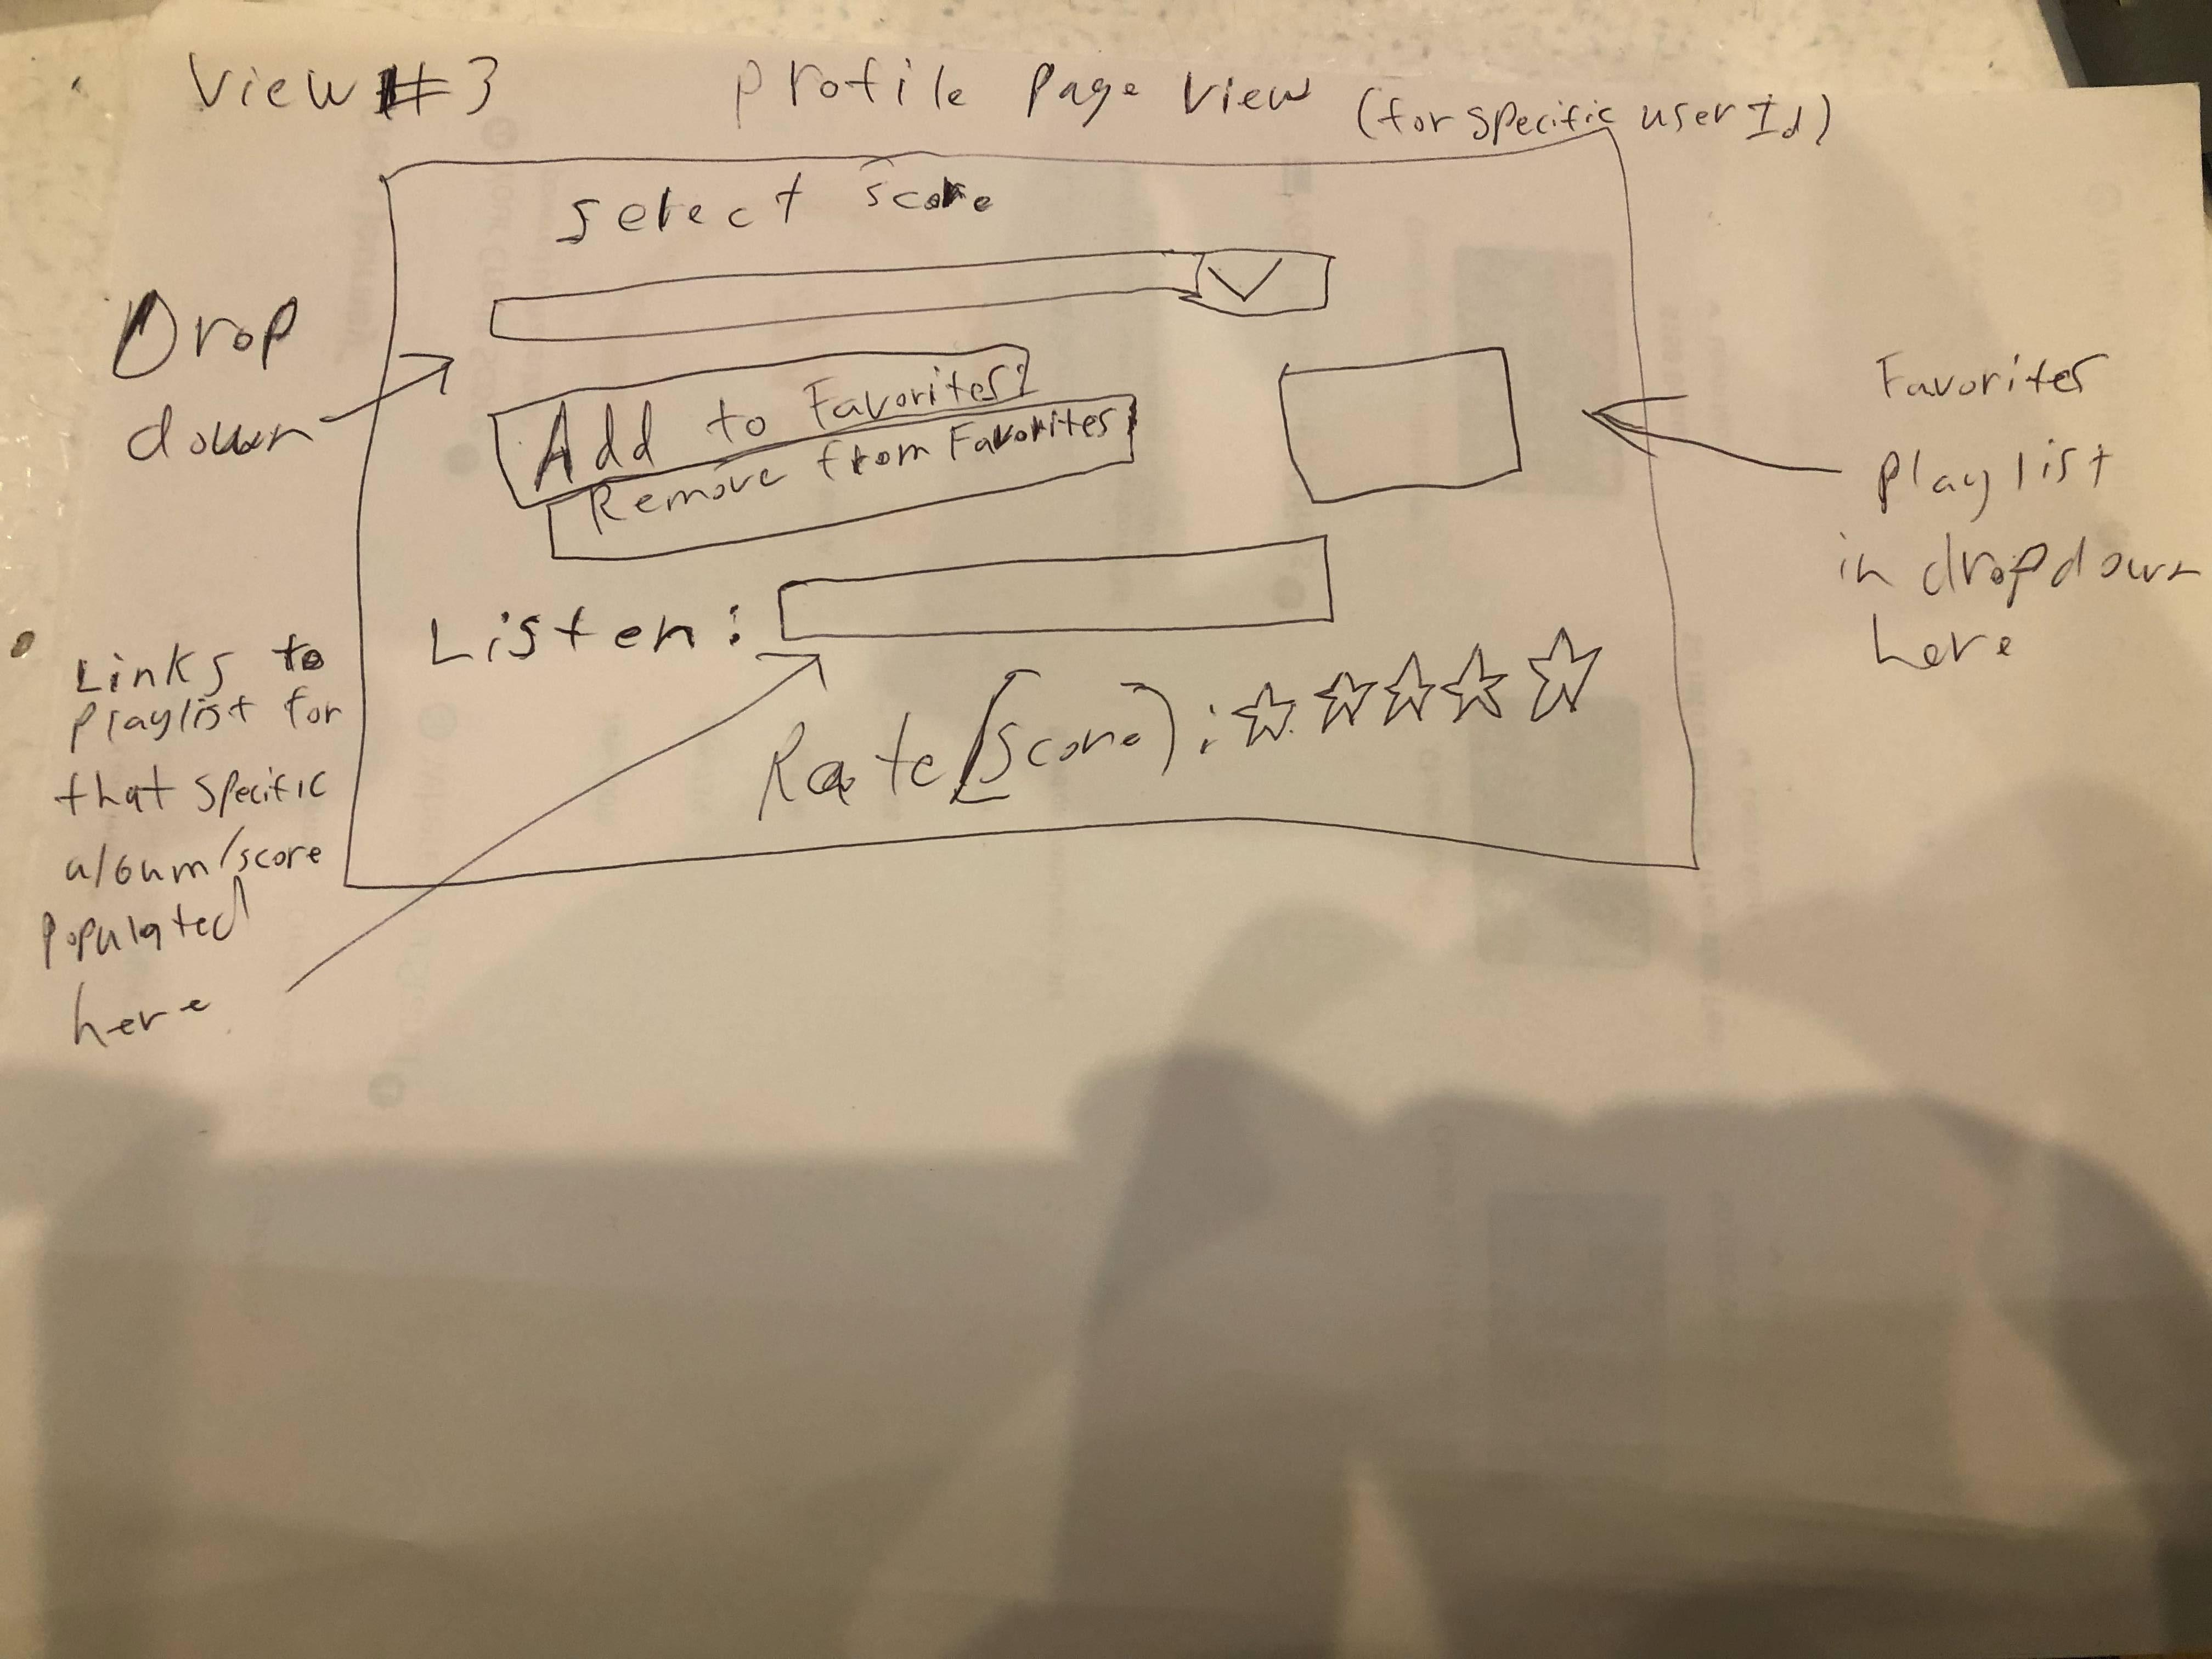 View #3
Profile Page View (for specific user Id)
Select Score
Drop
down
Add to Favorites?
Remove from Favorites
Favorites
playlist
in dropdown
here
Listen:
Links to
playlist for
that specific
album/score
populated
here
Rate (Score):